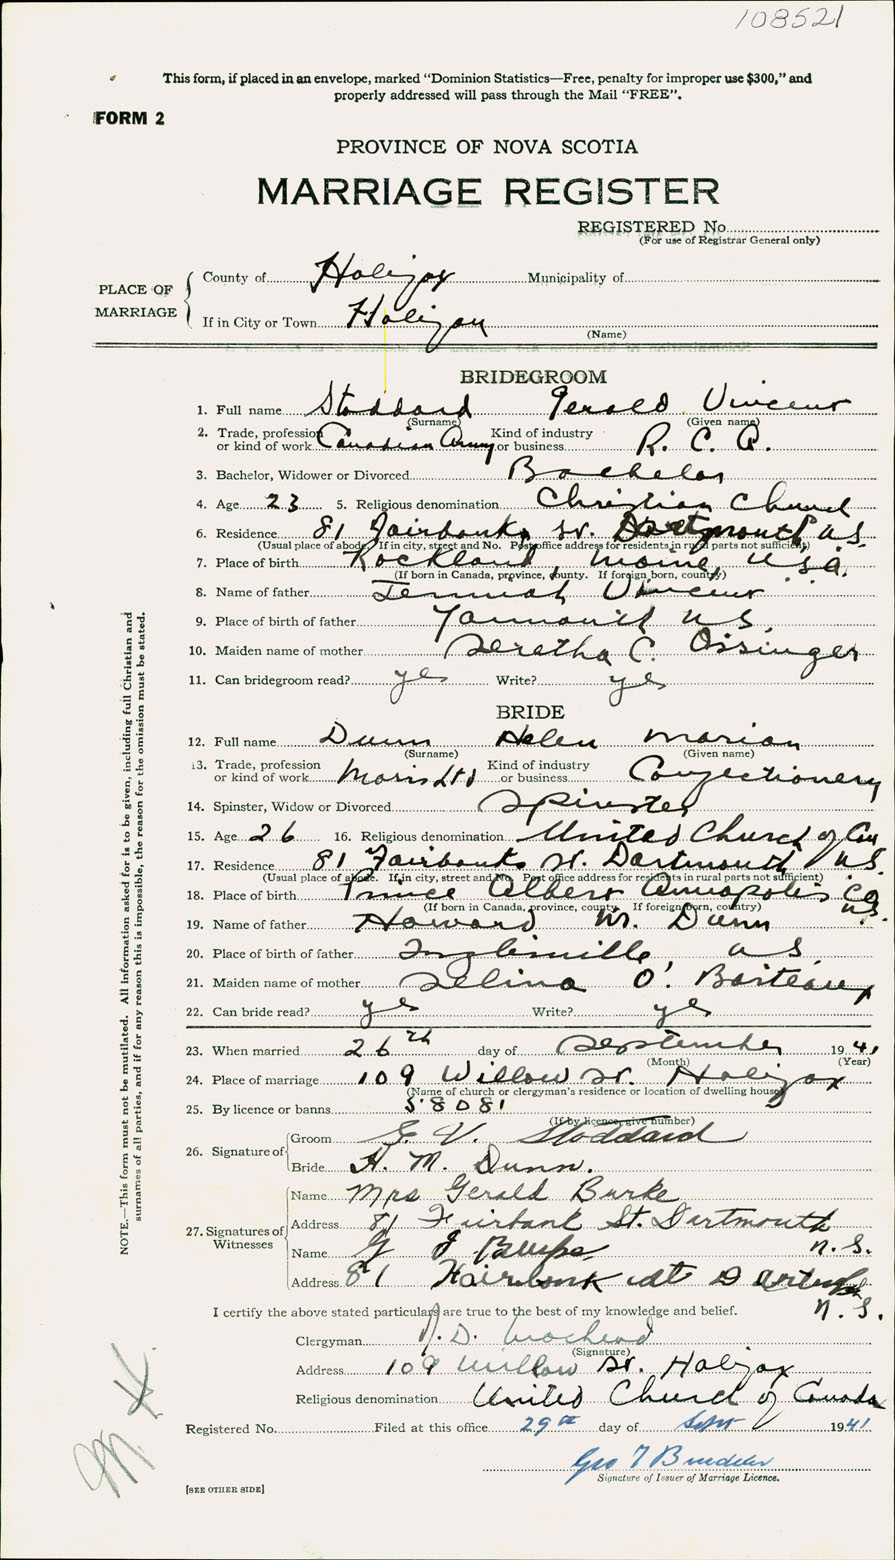 108521
This form, if placed in an envelope, marked "Dominion Statistics—Free, penalty for improper use $300," and
properly addressed will pass through the Mail "FREE".
FORM 2
PROVINCE OF NOVA SCOTIA
MARRIAGE REGISTER
REGISTERED No.
(For use of Registrar General only)
PLACE OF MARRIAGE
County of Halifax Municipality of
If in City or Town Halifax
(Name)
BRIDEGROOM
1. Full name Stoddard Gerald Vincent
(Surname) (Given name)
2. Trade, profession or kind of work Canadian Army Kind of industry or business R. C. A.
3. Bachelor, Widower or Divorced Bachelor
4. Age 23 5. Religious denomination Christian Church
6. Residence 81 Fairbanks St. Dartmouth N.S.
(Usual place of abode. If in city, street and No. Post office address for residents in rural parts not sufficient)
7. Place of birth Rockland, Maine, U.S.A.
(If born in Canada, province, county. If foreign born, country)
8. Name of father Vincent
9. Place of birth of father Yarmouth N.S.
10. Maiden name of mother Seretha C. Ossinger
11. Can bridegroom read? yes Write? yes
BRIDE
12. Full name Dunn Helen Marian
(Surname) (Given name)
13. Trade, profession or kind of work Moirs Ltd Kind of industry or business Confectionery
14. Spinster, Widow or Divorced Spinster
15. Age 26 16. Religious denomination United Church of Can
17. Residence 81 Fairbanks St. Dartmouth N.S.
(Usual place of abode. If in city, street and No. Post office address for residents in rural parts not sufficient)
18. Place of birth Prince Albert Annapolis Co. N.S.
(If born in Canada, province, county. If foreign born, country)
19. Name of father Howard M. Dunn
20. Place of birth of father Inglisville, N.S.
21. Maiden name of mother Selina O. Barteaux
22. Can bride read? yes Write? yes
23. When married 26th day of September 1941
(Month) (Year)
24. Place of marriage 109 Willow St. Halifax
(Name of church or clergyman's residence or location of dwelling house)
25. By licence or banns 58081
(If by licence, give number)
26. Signature of
Groom G. V. Stoddard
Bride H. M. Dunn.
27. Signatures of Witnesses
Name Mrs Gerald Burke
Address 81 Fairbank St. Dartmouth
N.S.
Name G J
Address 81 Fairbank St Dartmouth
N.S.
I certify the above stated particulars are true to the best of my knowledge and belief.
Clergyman
(Signature)
Address 109 Willow St. Halifax
Religious denomination United Church of Canada
Registered No. Filed at this office 29th day of Sept 1941
Geo T
Signature of Issuer of Marriage Licence.
[SEE OTHER SIDE]
NOTE.—This form must not be mutilated. All information asked for is to be given, including full Christian and
surnames of all parties, and if for any reason this is impossible, the reason for the omission must be stated.
M.H.